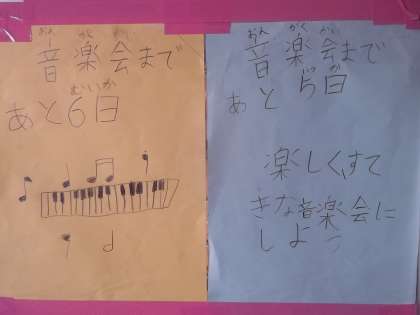 おん がく かい
音楽会まで
むいか
あと6日
おん がく かい
音楽会まで
か
あと5日
楽しくすて
きな音楽会に
しよう